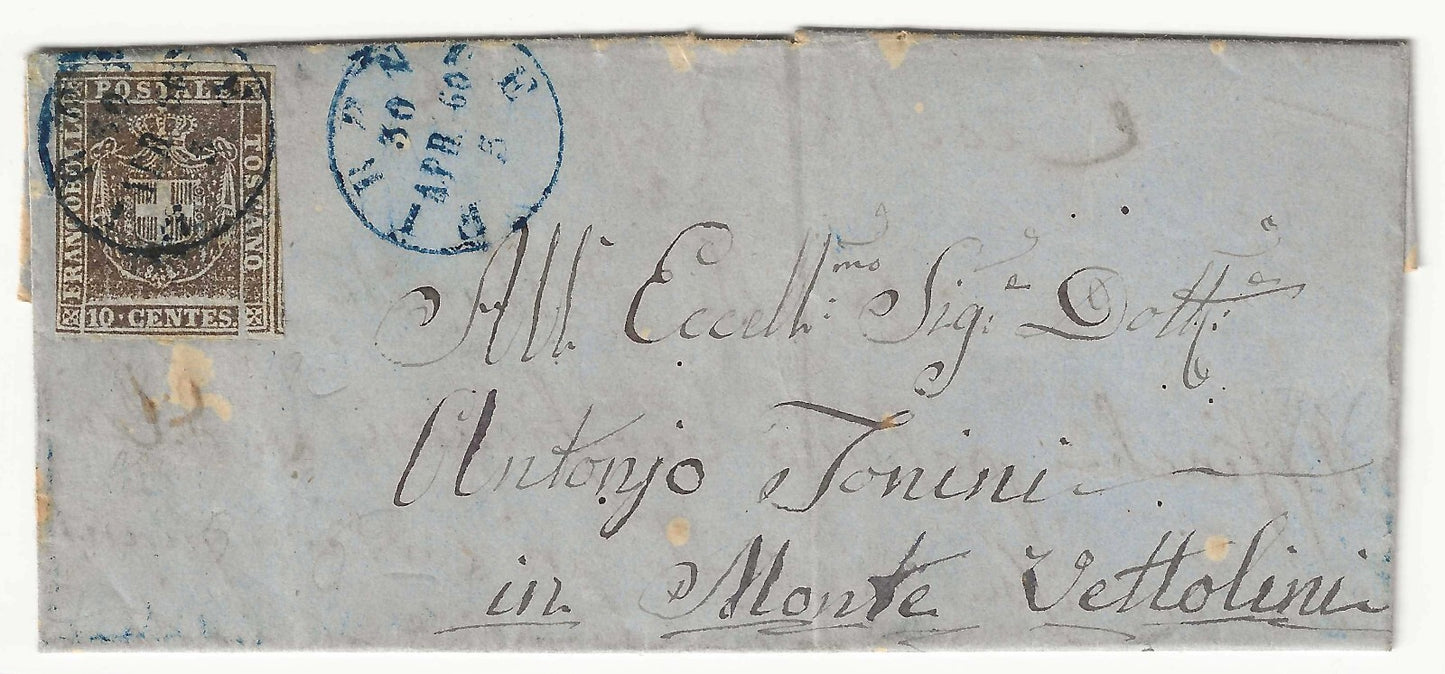 FRANCOBOLLO POSTALE TOSCANO
10 · CENTES.
30
APR 60
All' Eccell:mo Sig:e Dott:e
Antonjo Tonini
in Monte Vettolini